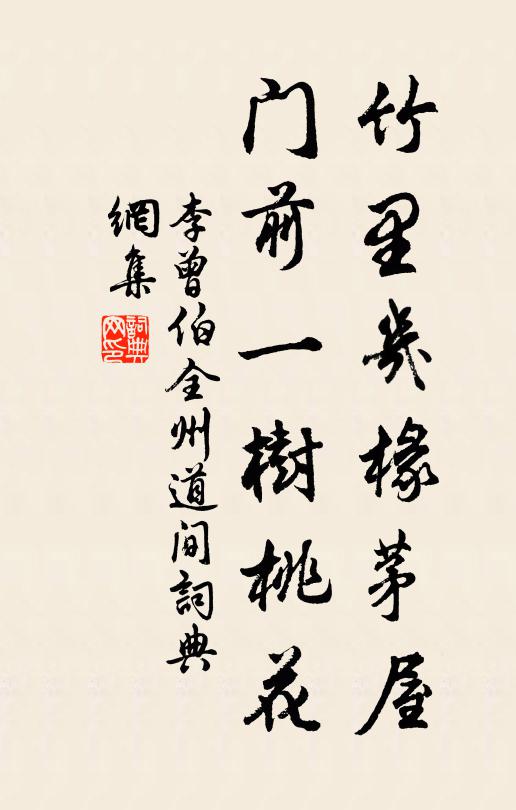 竹里幾椽茅屋
门前一樹桃花
李曾伯全州道间詞典
網集
詞典
网印